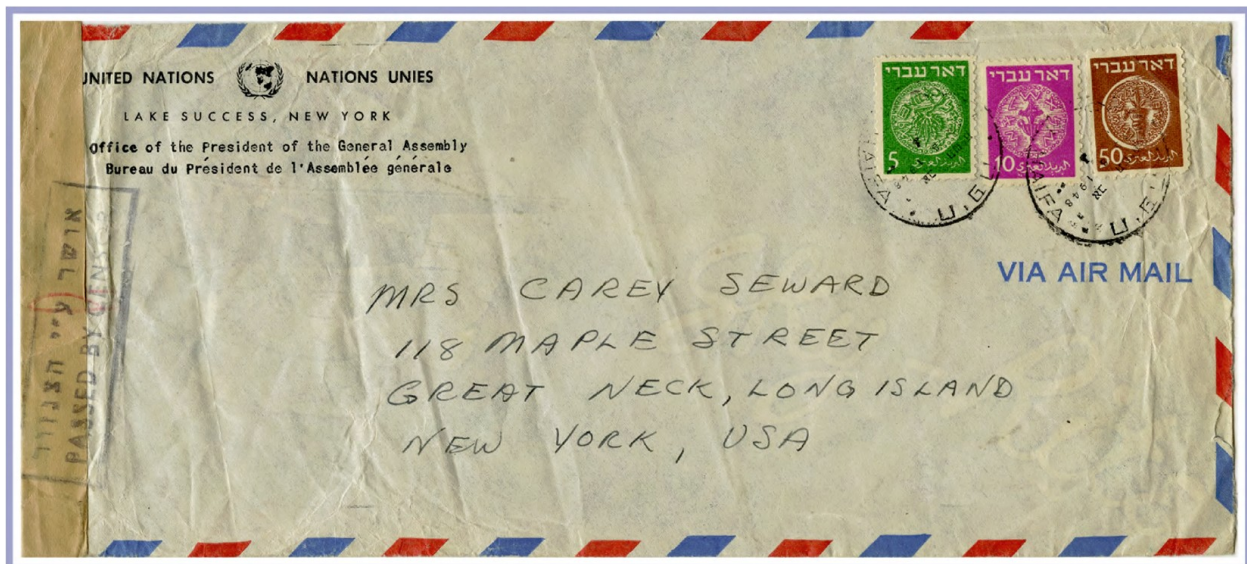 UNITED NATIONS NATIONS UNIES
LAKE SUCCESS, NEW YORK
Office of the President of the General Assembly
Bureau du Président de l'Assemblée générale
דאר עברי
5
البريد العبري
דאר עברי
10
البريد العبري
דאר עברי
50
البريد العبري
HAIFA
HAIFA
1948
VIA AIR MAIL
MRS CAREY SEWARD
118 MAPLE STREET
GREAT NECK, LONG ISLAND
NEW YORK, USA
אושר ע״י הצנזורה
PASSED BY CENS